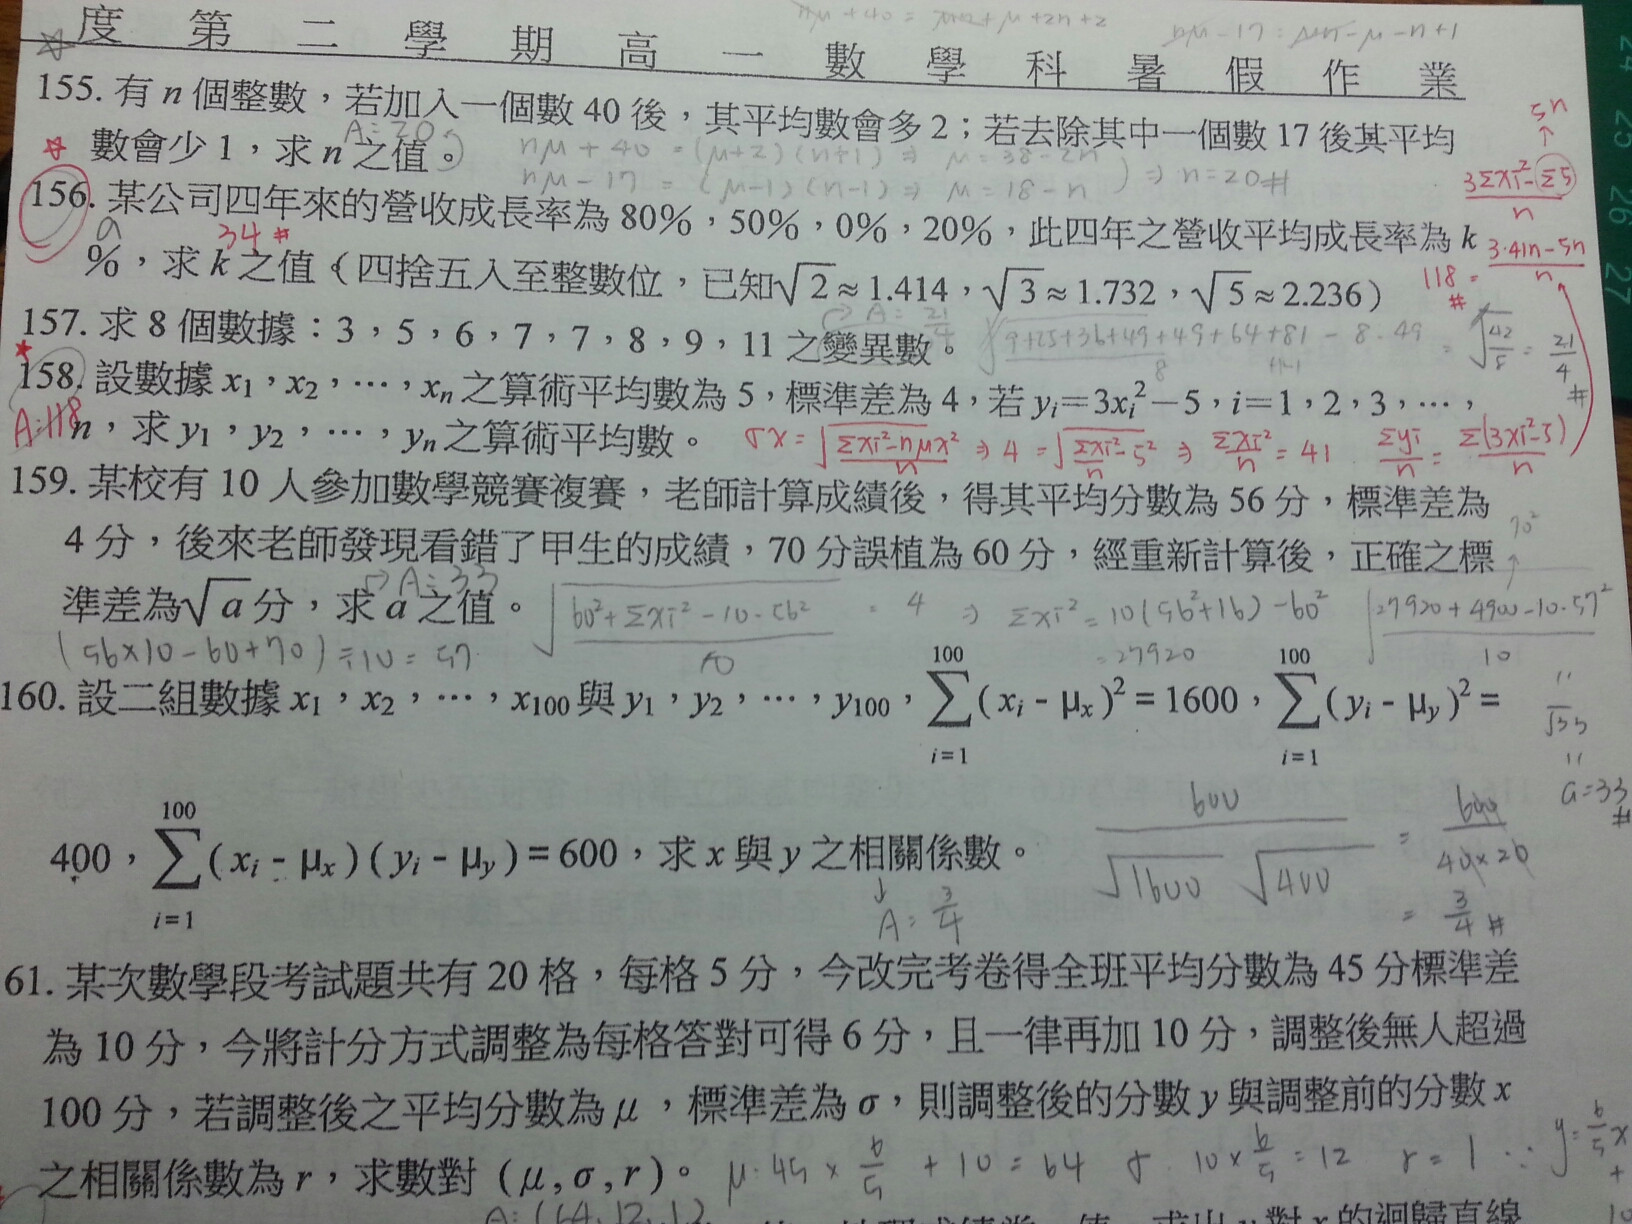 nμ - 17 = μn - μ - n + 1
度第二學期高一數學科暑假作業
155. 有 n 個整數，若加入一個數 40 後，其平均數會多 2；若去除其中一個數 17 後其平均
數會少 1，求 n 之值。
A=20
nμ + 40 = (μ+2)(n+1) ⇒ μ = 38 - 2n
nμ - 17 = (μ-1)(n-1) ⇒ μ = 18 - n ) ⇒ n = 20 #
5n
↑
3Σxi² - Σ5
n
156. 某公司四年來的營收成長率為 80%，50%，0%，20%，此四年之營收平均成長率為 k
%，求 k 之值（四捨五入至整數位，已知√2 ≈ 1.414，√3 ≈ 1.732，√5 ≈ 2.236）
34 #
118 = 3·41n - 5n
# n
157. 求 8 個數據：3，5，6，7，7，8，9，11 之變異數。
A = 21/4
158. 設數據 x₁，x₂，…，xₙ 之算術平均數為 5，標準差為 4，若 yᵢ＝3xᵢ²－5，i＝1，2，3，…，
n，求 y₁，y₂，…，yₙ 之算術平均數。
A:118
σx = √(Σxi² - nμx² / n) ⇒ 4 = √(Σxi²/n - 5²) ⇒ Σxi²/n = 41 Σyi/n = Σ(3xi² - 5)/n
159. 某校有 10 人參加數學競賽複賽，老師計算成績後，得其平均分數為 56 分，標準差為
4 分，後來老師發現看錯了甲生的成績，70 分誤植為 60 分，經重新計算後，正確之標
準差為√a 分，求 a 之值。
A=33
√(60² + Σxi² - 10·56² / 10) = 4 ⇒ Σxi² = 10(56² + 16) - 60²
= 27920
70²
√(27920 + 4900 - 10·57² / 10)
(56×10 - 60 + 70) ÷ 10 = 57
√33
a = 33 #
160. 設二組數據 x₁，x₂，…，x₁₀₀ 與 y₁，y₂，…，y₁₀₀，∑(i=1→100)(xᵢ - μₓ)² = 1600，∑(i=1→100)(yᵢ - μᵧ)² =
400，∑(i=1→100)(xᵢ - μₓ)(yᵢ - μᵧ) = 600，求 x 與 y 之相關係數。
A = 3/4
600 / √1600 √400 = 600 / 40×20
= 3/4 #
61. 某次數學段考試題共有 20 格，每格 5 分，今改完考卷得全班平均分數為 45 分標準差
為 10 分，今將計分方式調整為每格答對可得 6 分，且一律再加 10 分，調整後無人超過
100 分，若調整後之平均分數為 μ，標準差為 σ，則調整後的分數 y 與調整前的分數 x
之相關係數為 r，求數對（μ, σ, r）。
μ: 45 × 6/5 + 10 = 64 σ: 10 × 6/5 = 12 r = 1 ∵ y = 6/5 x +
A:(64,12,1)
求出 y 對 x 的迴歸直線